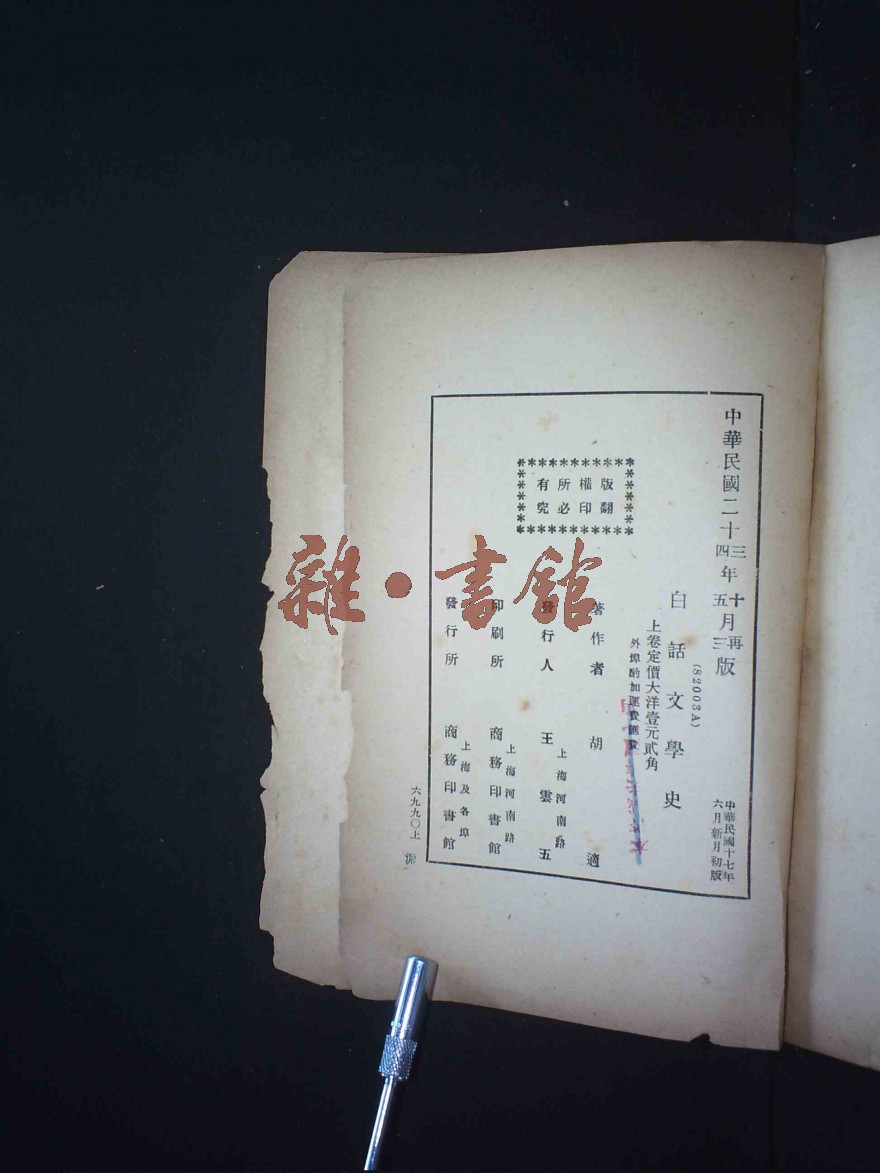 中華民國二十三四年十五月再三版
中華民國十七年
六月新月初版
白話文學史
(82003A)
上卷定價大洋壹元貳角
外埠酌加運費匯費
版權所有
翻印必究
著作者 胡適
發行人 王雲五
上海河南路
印刷所 商務印書館
上海河南路
發行所 商務印書館
上海及各埠
六九九〇上
雜·書館